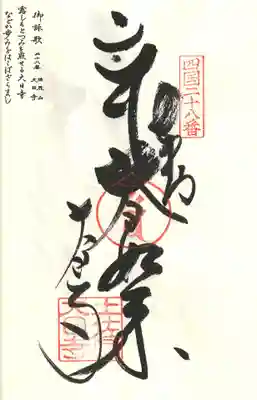 御詠歌
二十八番 法界山 大日寺
露しもとつみを照せる大日寺
などか歩みをはこばざらまし
四国二十八番
奉納
大日如来
大日寺
土佐
大日寺